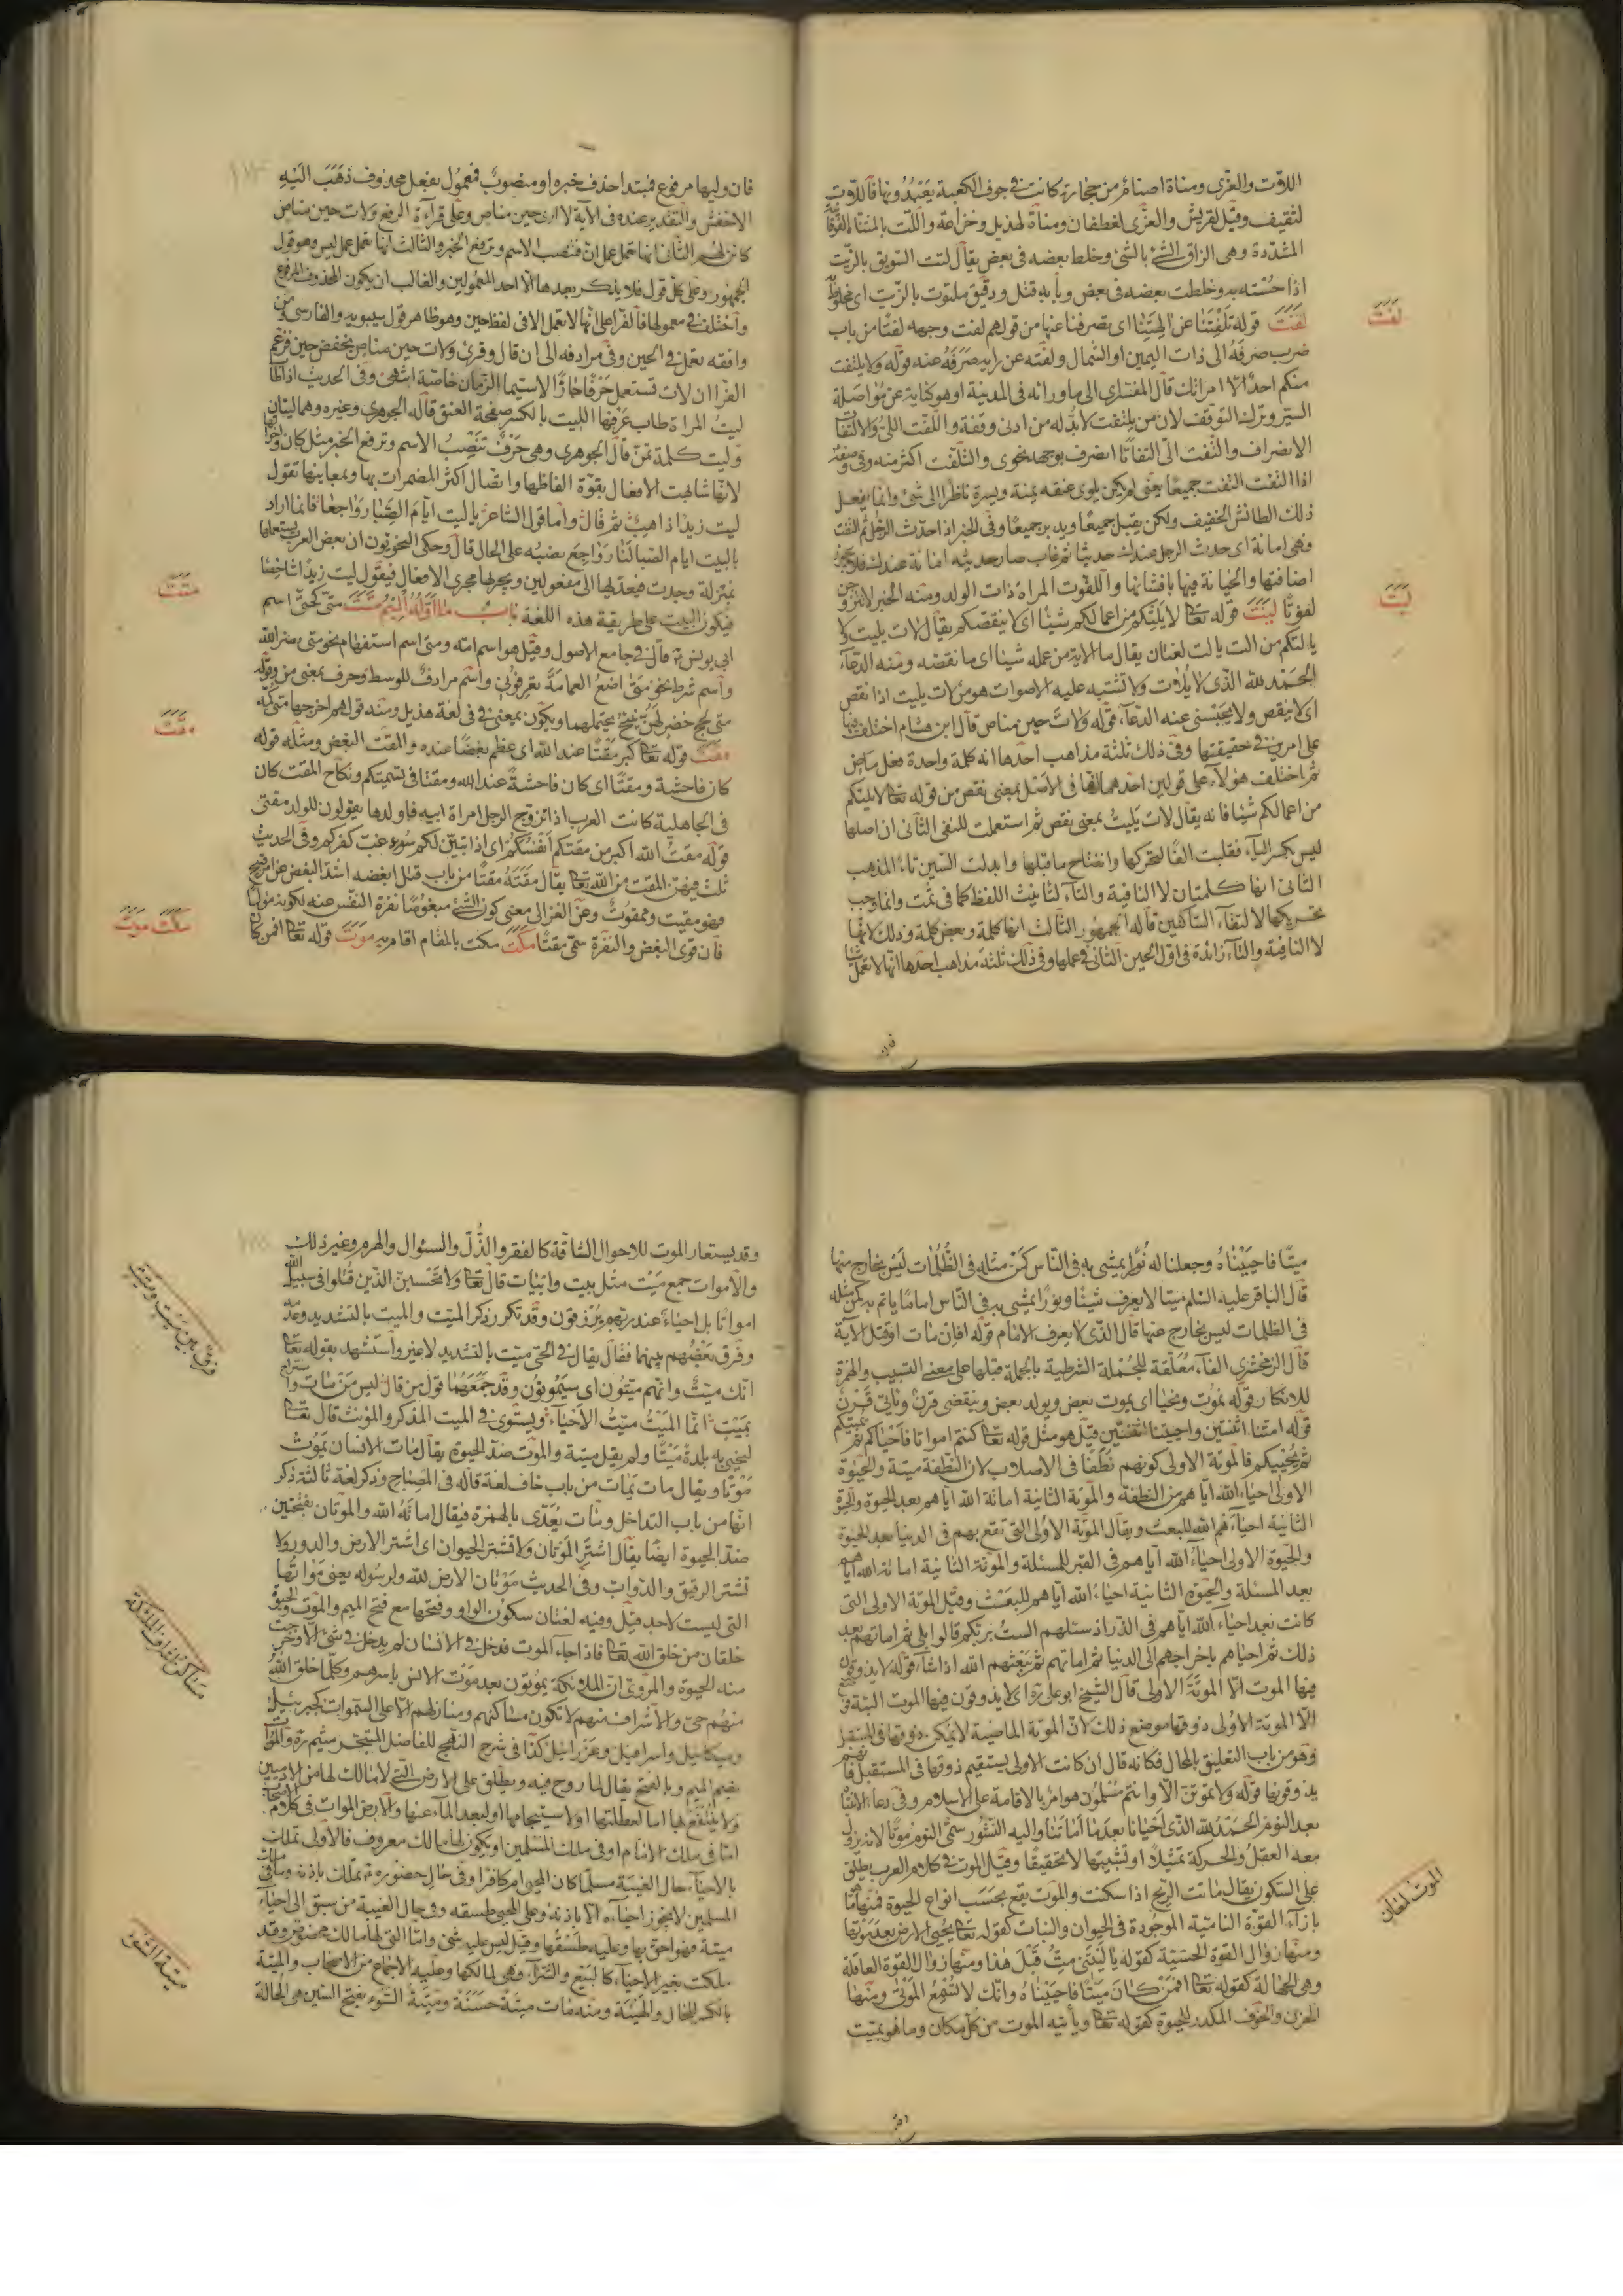 اللات والعزى ومناة اصنام من حجارة كانت في جوف الكعبة يعبدونها فاللات
لثقيف وقيل لقريش والعزى لغطفان ومناة لهذيل وخزاعة واللت بالمثناة الفوقانية
المشددة وهي الزاق الشئ بالشئ وخلط بعضه في بعض يقال لتت السويق بالزيت
اذا حسسته به وخلطت بعضه في بعض وبابه قتل ودقيق ملتوت بالزيت اى مخلوط
لفت قوله تلفتنا عن الهتنا اى تصرفنا عنها من قولهم لفت وجهه لفتا من باب
ضرب صرفه الى ذات اليمين او الشمال ولفته عن رايه صرفه عنه قوله ولا يلتفت
منكم احد الا امراتك قال المفسر اى الى ما ورائه في المدينة او هو كناية عن مواصلة
السير وترك التوقف لان من يلتفت لا بد له من ادنى وقفة واللفت اللى والالتفات
الانصراف والتفت الى التفاتا انصرف بوجهه نحوى والتلفت اكثر منه وفي وصفه
اذا التفت التفت جميعا يعنى لم يكن يلوى عنقه يمنة ويسرة ناظرا الى شئ وانما يفعل
ذلك الطائش الخفيف ولكن يقبل جميعا ويدبر جميعا وفي الخبر اذا حدث الرجل ثم التفت
فهى امانة اى حدث الرجل عندك حديثا ثم غاب صار حديثه امانة عندك فلا يجوز
اضاعتها والخيانة فيها بافشائها واللفوت المراة ذات الولد ومنه الخبر لا تتزوجن
لفوتا ليت قوله تعا لا يلتكم من اعمالكم شيئا اى لا ينقصكم يقال لات يليت ولا
يالتكم من الت يالت لغتان يقال ما الاته من عمله شيئا اى ما نقصه ومنه الدعاء
الحمد لله الذى لا يلات ولا تشتبه عليه الاصوات هو من لات يليت اذا نقص
اى لا ينقص ولا يحبس عنه الدعاء قوله ولات حين مناص قال ابن هشام اختلف فيها
على امرين في حقيقتها وفي ذلك ثلثة مذاهب احدها انه كلمة واحدة فعل ماض
ثم اختلف هؤلاء على قولين احدهما انها في الاصل بمعنى نقص من قوله تعا لا يلتكم
من اعمالكم شيئا فانه يقال لات يليت بمعنى نقص ثم استعملت للنفى الثانى ان اصلها
ليس بكسر الياء فقلبت الفا لتحركها وانفتاح ما قبلها وابدلت السين تاء المذهب
الثانى انها كلمتان لا النافية والتاء لتانيث اللفظ كما في ثمت وانما وجب
تحريكها لالتقاء الساكنين قاله الجمهور الثالث انها كلمة وبعض كلمة وذلك انها
لا النافية والتاء زائدة في اول الحين الثانى في عملها وفي ذلك ثلثة مذاهب احدها انها لا تعمل شيئا
لفت
ليت
فان
فان وليها مرفوع فمبتدا حذف خبره او منصوب فمعمول بفعل محذوف ذهب اليه
الاخفش والتقدير عنده في الآية لا ارى حين مناص وعلى قراءة الرفع ولات حين مناص
كائن لهم الثانى انها تعمل عمل ان فتنصب الاسم وترفع الخبر والثالث انها تعمل عمل ليس وهو قول
الجمهور وعلى كل قول فلا يذكر بعدها الا احد المعمولين والغالب ان يكون المحذوف المرفوع
واختلف في معمولها فالفرا على انها لا تعمل الا في لفظ حين وهو ظاهر قول سيبويه والفارسى ومن
وافقه تعمل في الحين وفي مرادفه الى ان قال وقرئ ولات حين مناص بخفض حين فزعم
الفرا ان لات تستعمل حرفا جارا لاسيما الزمان خاصة انتهى وفي الحديث اذا طاب
ليت المراة طاب عرفها الليت بالكسر صفحة العنق قاله الجوهرى وغيره وهما ليتان
وليت كلمة تمن قال الجوهرى وهى حرف تنصب الاسم وترفع الخبر مثل كان واخواتها
لانها شابهت الافعال بقوة الفاظها واتصال اكثر المضمرات بها وبمعاينها تقول
ليت زيدا ذاهب ثم قال واما قول الشاعر يا ليت ايام الصبا رواجعا فانما اراد
ياليت ايام الصبا لنا رواجع نصبه على الحال قال وحكى النحويون ان بعض العرب يستعملها
بمنزلة وجدت فيعديها الى مفعولين ويجريها مجرى الافعال فيقول ليت زيدا شاخصا
فيكون البيت على طريقة هذه اللغة باب ما اوله الميم متت متى كحتى اسم
ابى يونس قال في جامع الاصول وقيل هو اسم امه ومتى اسم استفهام نحو متى نصر الله
واسم شرط نحو متى اضع العمامة تعرفونى واسم مرادف للوسط وحرف بمعنى من وقوله
متى لجج خضر لهن نئيج يحتملهما ويكون بمعنى في في لغة هذيل ومنه قولهم اخرجها متى كمه
مقت قوله تعا كبر مقتا عند الله اى عظم بغضا عنده والمقت البغض ومثله قوله
كان فاحشة ومقتا اى كان فاحشة عند الله ومقتا في تسميتكم ونكاح المقت كان
في الجاهلية كانت العرب اذا تزوج الرجل امراة ابيه فاولدها يقولون للولد مقتى
قوله مقت الله اكبر من مقتكم انفسكم اى اذا تبين لكم سوء غب كفركم وفي الحديث
ثلث فيهن المقت من الله تعا يقال مقته مقتا من باب قتل ابغضه اشد البغض عن امر قبيح
فهو مقيت وممقوت وعن الغزالى معنى كون الشئ مبغوضا نفرة النفس عنه لكونه مؤلما
فان قوى البغض والنفرة سمى مقتا مكت مكت بالمقام اقام به موت قوله تعا افمن كان
متت
مقت
مكت موت
ميتا فاحييناه وجعلنا له نورا يمشى به في الناس كمن مثله في الظلمات ليس بخارج منها
قال الباقر عليه السلم ميتا لا يعرف شيئا ونورا يمشى به في الناس اماما ياتم به كمن مثله
في الظلمات ليس بخارج منها قال الذى لا يعرف الامام قوله افان مات او قتل الآية
قال الزمخشرى الفاء معلقة للجملة الشرطية بالجملة قبلها على معنى التسبيب والهمزة
للانكار قوله نموت ونحيا اى يموت بعض ويولد بعض وينقضى قرن وياتى قرن
قوله امتنا اثنتين واحييتنا اثنتين قيل هو مثل قوله تعا كنتم امواتا فاحياكم ثم يميتكم
ثم يحييكم فالموتة الاولى كونهم نطفا في الاصلاب لان النطفة ميتة والحيوة
الاولى احياء الله اياهم من النطفة والموتة الثانية اماتة الله اياهم بعد الحيوة والحيوة
الثانية احياءهم الله للبعث ويقال الموتة الاولى التى تقع بهم في الدنيا بعد الحيوة
والحيوة الاولى احياء الله اياهم في القبر للمسئلة والموتة الثانية اماتة الله اياهم
بعد المسئلة والحيوة الثانية احياء الله اياهم للبعث وقيل الموتة الاولى التى
كانت بعد احياء الله اياهم في الذر اذ سئلهم الست بربكم قالوا بلى ثم اماتهم بعد
ذلك ثم احياهم باخراجهم الى الدنيا ثم اماتهم ثم يبعثهم الله اذا شاء قوله لا يذوقون
فيها الموت الا الموتة الاولى قال الشيخ ابو على ره اى لا يذوقون فيها الموت البتة فوضع
الا الموتة الاولى ذوقها موضع ذلك لان الموتة الماضية لا يمكن ذوقها في المستقبل
وهو من باب التعليق بالحال فكانه قال ان كانت الاولى يستقيم ذوقها في المستقبل فانهم
يذوقونها قوله ولا تموتن الا وانتم مسلمون هو امر بالاقامة على الاسلام وفي دعاء الانتباه
بعد النوم الحمد لله الذى احيانا بعد ما اماتنا واليه النشور سمى النوم موتا لانه يزول
معه العقل والحركة تمثيلا او تشبيها لا تحقيقا وقيل الموت في كلام العرب يطلق
على السكون يقال ماتت الريح اذا سكنت والموت يقع بحسب انواع الحيوة فمنها ما هو
بازاء القوة النامية الموجودة في الحيوان والنبات كقوله تعا يحيى الارض بعد موتها
ومنها زوال القوة الحسية كقوله يا ليتنى مت قبل هذا ومنها زوال القوة العاقلة
وهى الجهالة كقوله تعا افمن كان ميتا فاحييناه وانك لا تسمع الموتى ومنها
الحزن والخوف المكدر للحيوة كقوله تعا وياتيه الموت من كل مكان وما هو بميت
الموت لمعان
وقد يستعار الموت للاحوال الشاقة كالفقر والذل والسئوال والهرم وغير ذلك
والاموات جمع ميت مثل بيت وابيات قال تعا ولا تحسبن الذين قتلوا في سبيل الله
امواتا بل احياء عند ربهم يرزقون وقد تكرر ذكر الميت والميت بالتشديد وعدمه
وفرق بعضهم بينهما فقال يقال في الحى ميت بالتشديد لا غير واستشهد بقوله تعا
انك ميت وانهم ميتون اى سيموتون وقد جمعهما قول من قال ليس من مات فاستراح
بميت انما الميت ميت الاحياء ويستوى في الميت المذكر والمؤنث قال تعا
لنحيى به بلدة ميتا ولم يقل ميتة والموت ضد الحيوة يقال مات الانسان يموت
موتا ويقال مات يمات من باب خاف لغة قاله في المصباح وذكر لغة ثالثة ذكر
انها من باب التداخل ومات يعدى بالهمزة فيقال اماته الله والموتان بفتحتين
ضد الحيوة ايضا يقال اشتر الموتان ولا تشتر الحيوان اى اشتر الارض والدور ولا
تشتر الرقيق والدواب وفي الحديث موتان الارض لله ولرسوله يعنى مواتها
التى ليست لاحد قيل وفيه لغتان سكون الواو وفتحها مع فتح الميم والموت والحيوة
خلقان من خلق الله تعا فاذا جاء الموت فدخل في الانسان لم يدخل في شئ الا وخرجت
منه الحيوة والمروى ان الملائكة يموتون بعد موت الانس باسرهم وكلما خلق الله
منهم حى والاشراف منهم لا تكون مساكنهم ومنازلهم الا على السموات كجبرئيل
وميكائيل واسرافيل وعزرائيل كذا في شرح النهج للفاضل المتبحر ميثم ره والموات
بضم الميم وبالفتح يقال لما لا روح فيه ويطلق على الارض التى لا مالك لها من الآدميين
ولا ينتفع بها اما لعطلتها او لاستيجامها او لبعد الماء عنها والارض الموات في كلام الاصحاب
اما في ملك الامام او في ملك المسلمين او يكون لها مالك معروف فالاولى تملك
بالاحياء حال الغيبة مسلما كان المحيى ام كافرا وفي حال حضوره تملك باذنه وما في ملك
المسلمين لا يجوز احياءه الا باذنه وعلى المحيى طسقه وفي حال الغيبة من سبق الى احياء
ميتة فهو احق بها وعليه طسقها وقيل ليس عليه شئ واما التى لها مالك مخصوص وقد
ملكت بغير الاحياء كالبيع والشراء وهى لمالكها وعليه الاجماع من الاصحاب والميتة
بالكسر للحال والهيئة ومنه مات ميتة حسنة وميتة السوء بفتح السين هى الحالة
فرق بين ميت وميت
مساكن اشراف الملائكة
ميتة السوء